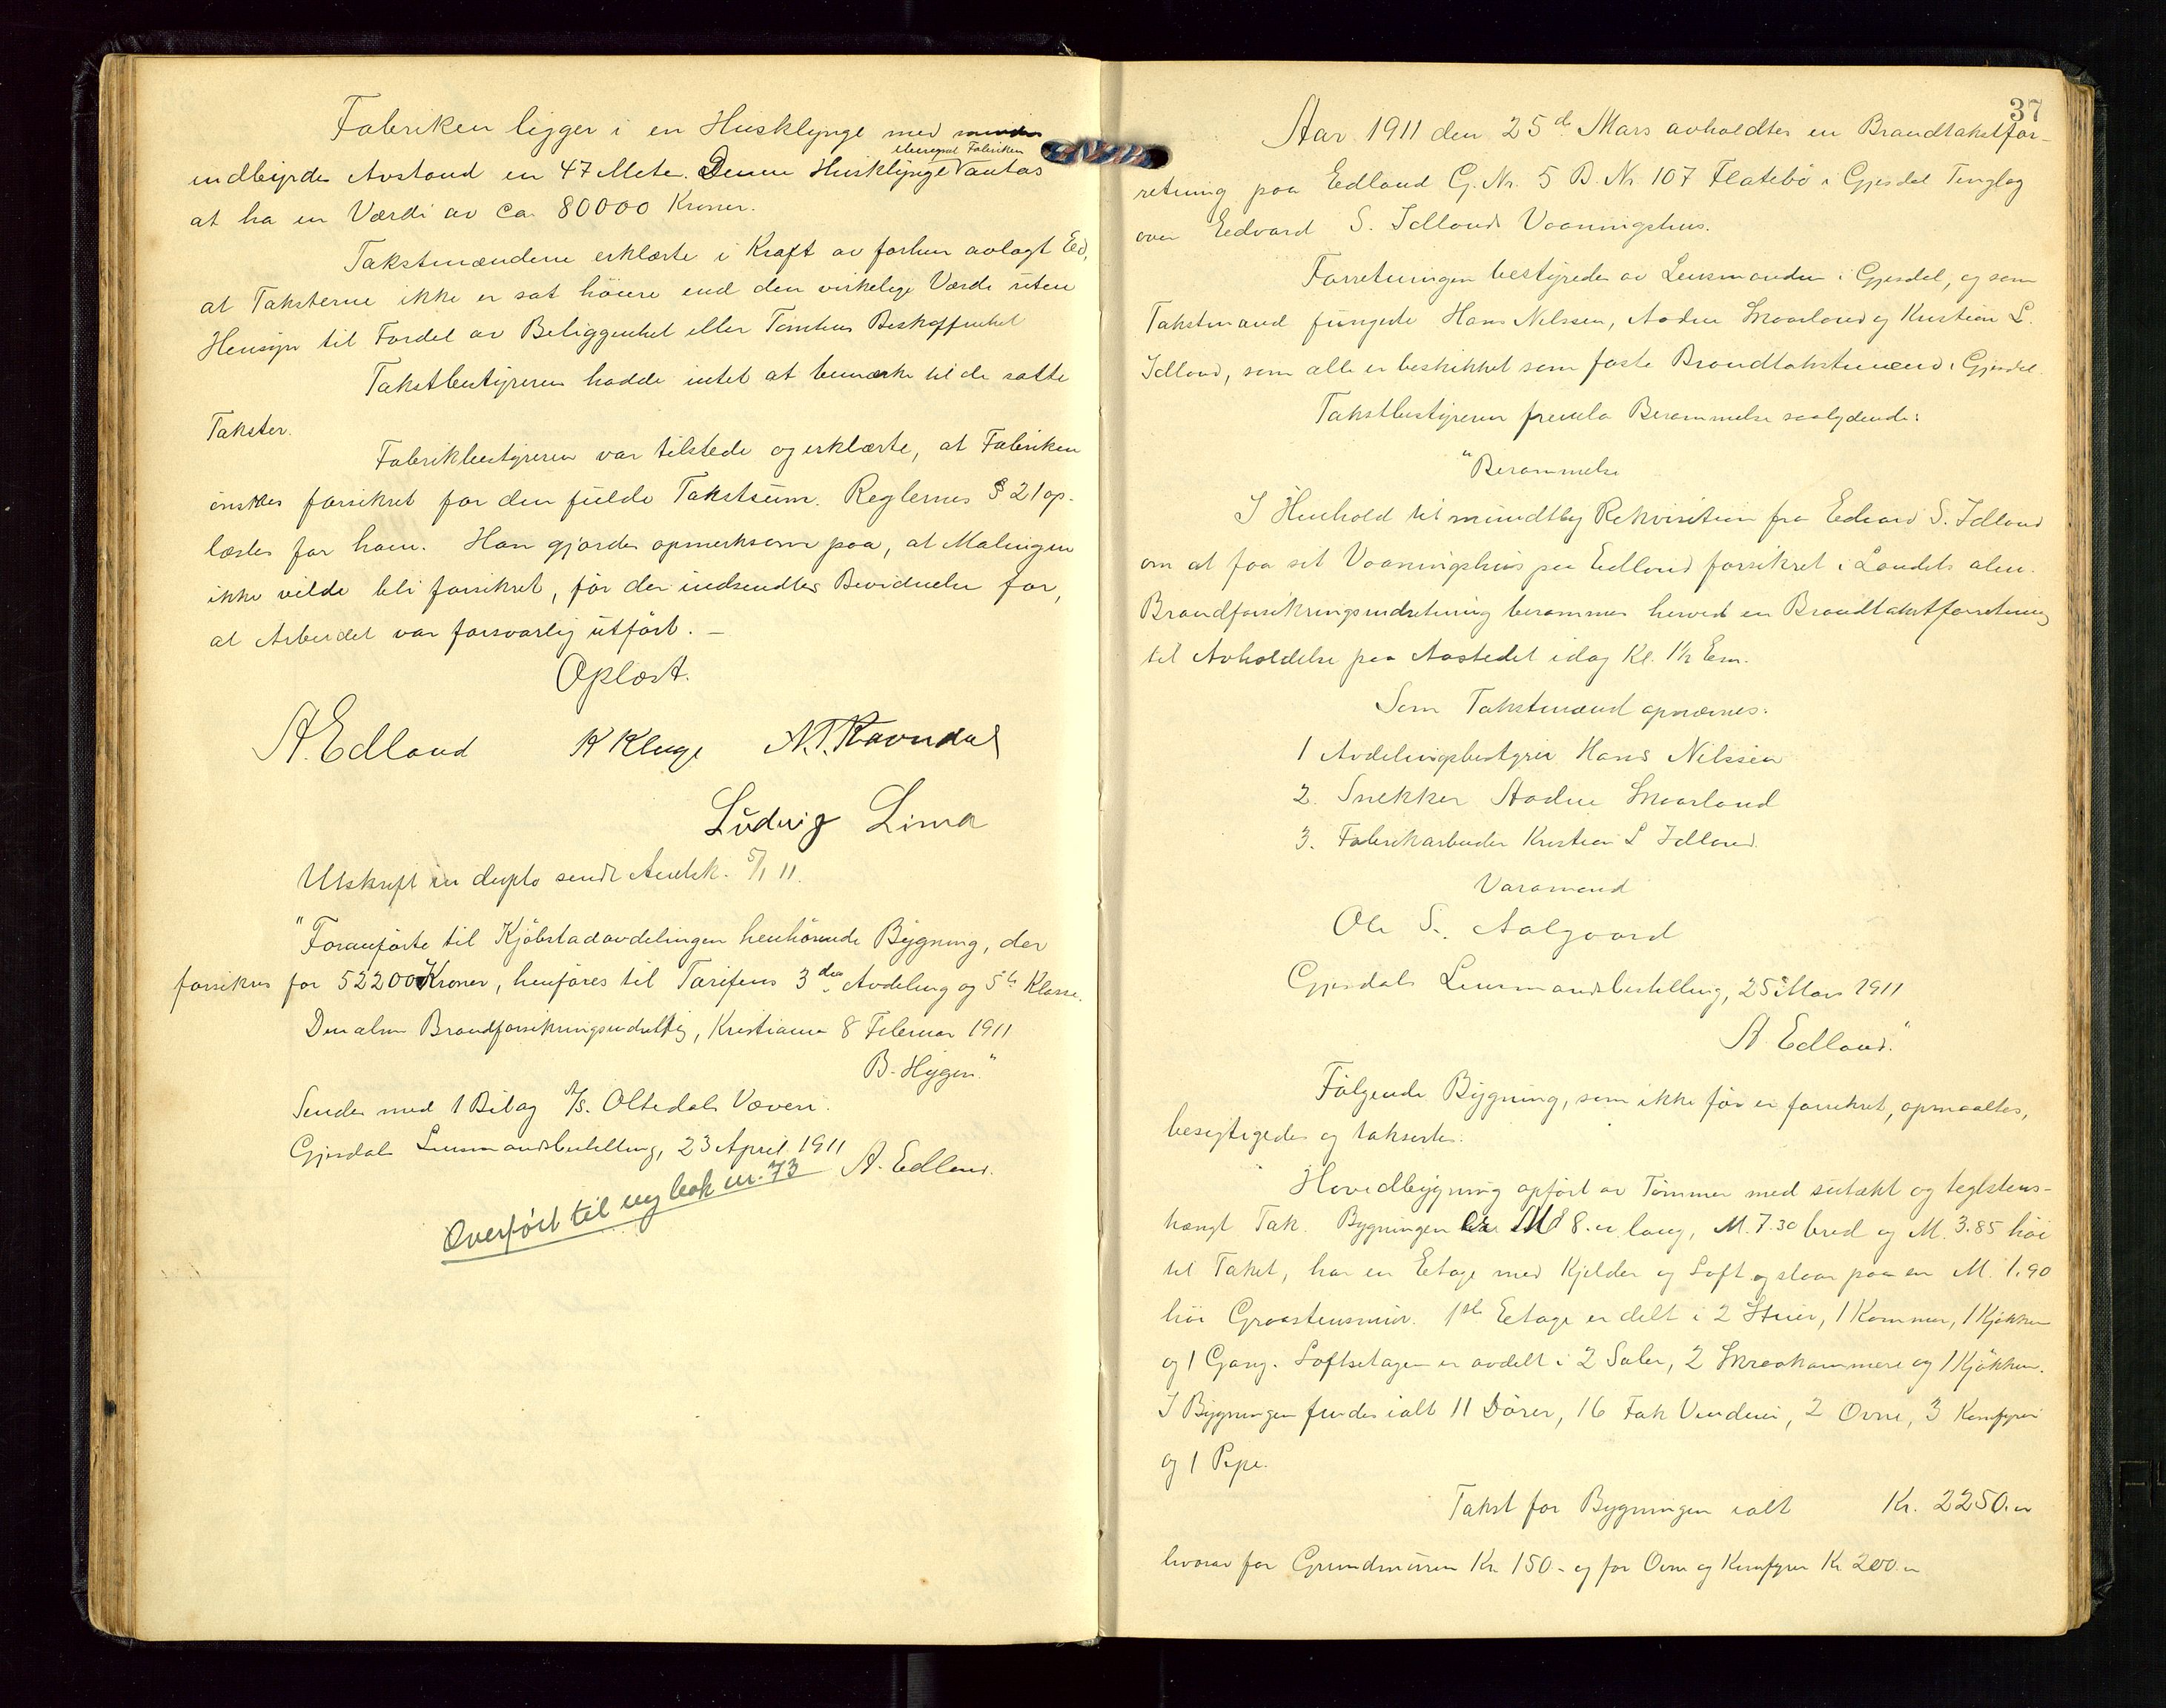 Fabriken ligger i en Husklynge med mindre
indbyrdes Avstand en 47 Meter. Denne Husklynge iberegnet Fabriken antas
at ha en Værdi av ca. 80000 Kroner.
Takstmændene erklærte i Kraft av forhen avlagt Ed,
at Taksterne ikke er sat höiere end den virkelige Værdi uten
Hensyn til Fordel av Beliggenhet eller Tomtens Beskaffenhet
Takstbestyreren hadde intet at bemærke til de satte
Takster.
Fabrikbestyreren var tilstede og erklærte, at Fabriken
önskes forsikret for den fulde Takstsum. Reglernes § 21 op-
læstes for ham. Han gjordes opmerksom paa, at Malingen
ikke vilde bli forsikret, för der indsendtes Bevidnelse for,
at Arbeidet var forsvarlig utfört. –
Oplæst.
A. Edland K Kluge N. T. Ravndal
Ludvig Lima
Utskrift in duplo sendt Amtsk. 5/1 11.
"Foranförte til Kjöbstadavdelingen henhörende Bygning, der
forsikres for 52200 Kroner, henföres til Tarifens 3die Avdeling og 5te Klasse.
Den alm Brandforsikringsindretnig, Kristiania 8 Februar 1911
B. Hygen."
Sendes med 1 Bilag A/S. Oltedals Væveri.
Gjesdals Lensmandsbestilling, 23 April 1911
A. Edland.
Overfört til ny bok nr. 73
37
Aar 1911 den 25de Mars avholdtes en Brandtakstfor-
retning paa Edland G. Nr. 5 B. Nr. 107 Flatebö i Gjesdal Tinglag
over Edvard S. Idlands Vaaningshus.
Forretningen bestyredes av Lensmanden i Gjesdal, og som
Takstmænd fungerte Hans Nilssen, Aadne Skaarland og Kristian L.
Idland, som alle er beskikket som faste Brandtakstmænd i Gjesdal.
Takstbestyreren fremla Berammelse saalydende:
"Berammelse
I Henhold til mundtlig Rekvisition fra Edvard S. Idland
om at faa sit Vaaningshus paa Edland forsikret i Landets alm.
Brandforsikringsindretning berammes herved en Brandtakstforretning
til Avholdelse paa Aastedet idag Kl. 1½ Em.
Som Takstmænd opnævnes:
1 Avdelingsbestyrer Hans Nilssen
2. Snekker Aadne Skaarland
3. Fabrikarbeider Kristian L Idland.
Varamand
Ole S. Aalgaard
Gjesdals Lensmandsbestilling, 25 Mars 1911
A. Edland."
Fölgende Bygning, som ikke för er forsikret, opmaaltes,
besigtigedes og taksertes:
Hovedbygning opfört av Tömmer med sutækt og teglstens-
hængt Tak. Bygningen er M 8.00 lang, M. 7.30 bred og M. 3.85 höi
til Taket, har en Etage med Kjelder og Loft og staar paa en M. 1.90
höi Graastensmur. 1ste Etage er delt i 2 Stuer, 1 Kammer, 1 Kjökken
og 1 Gang. Loftsetagen er avdelt i 2 Saler, 2 Skraakammere og 1 Kjökken.
I Bygningen findes ialt 11 Dörer, 16 Fak Vinduer, 2 Ovne, 3 Komfyrer
og 1 Pipe.
Takst for Bygningen ialt Kr. 2250.00
hvorav for Grundmuren Kr. 150.- og for Ovne og Komfyrer Kr 200.00